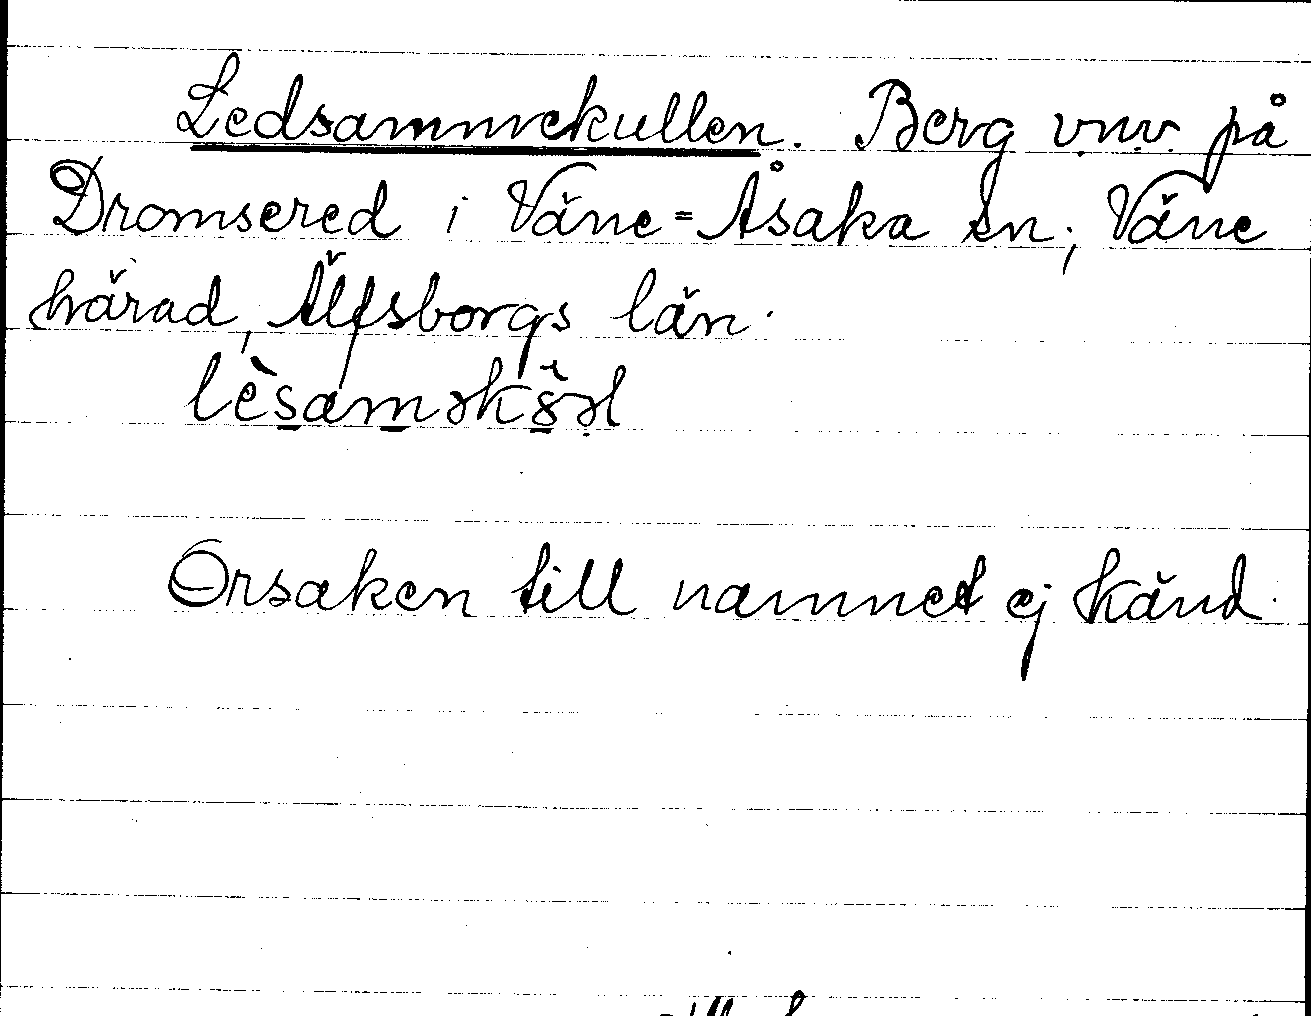 Ledsammekullen. Berg v.n.v. på
Dromsered i Väne-Åsaka sn; Väne
härad, Älfsborgs län.
lèsamək8̆əl
Orsaken till namnet ej känd.